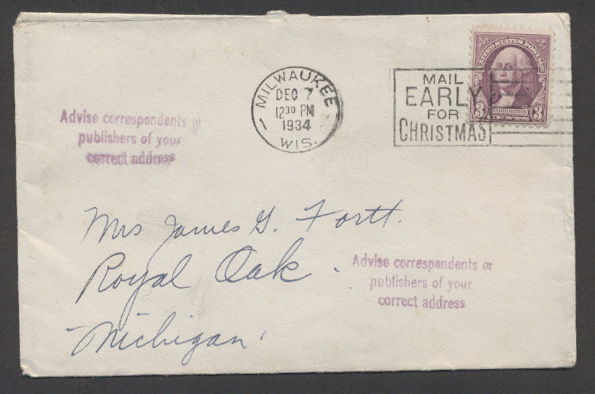 UNITED STATES POSTAGE
3 WASHINGTON 3
MILWAUKEE
DEC 7
12 30 PM
1934
WIS.
MAIL
EARLY
FOR
CHRISTMAS
Advise correspondents or
publishers of your
correct address
Mrs James G. Fortt.
Royal Oak.
Michigan.
Advise correspondents or
publishers of your
correct address